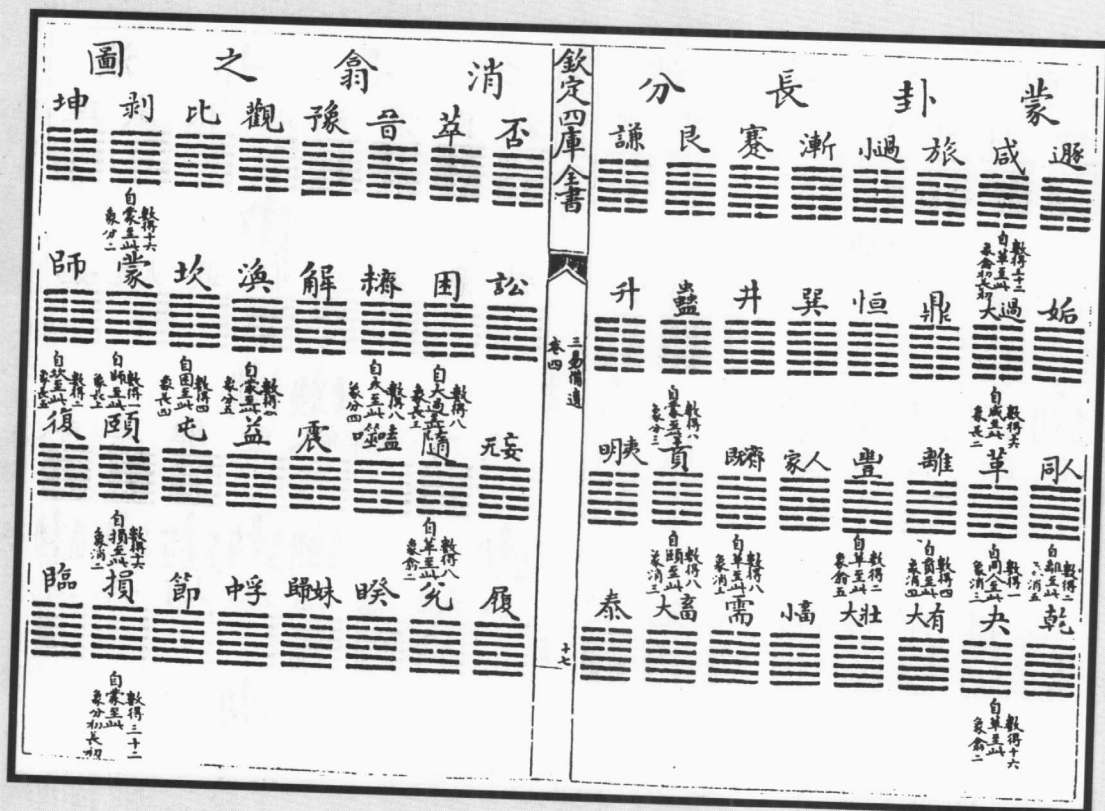 蒙卦長分
遯
咸
旅
小過
漸
蹇
艮
謙
數得三十二
自革至此
象翕初長初
姤
大過
鼎
恒
巽
井
蠱
升
數得十六
自咸至此
象長二
數得八
自蒙至此
象分三
同人
革
離
豐
家人
既濟
賁
明夷
數得二
自離至此
消五
數得一
自同人至此
象消三
數得四
自賁至此
象消四
數得二
自革至此
象翕五
數得八
自革至此
象消上
數得八
自頤至此
象消三
乾
夬
大有
大壯
小畜
需
大畜
泰
數得十六
自革至此
象翕二
欽定四庫全書
三易備遺
卷四
十七
消翕之圖
否
萃
晉
豫
觀
比
剝
坤
數得十六
自蒙至此
象分二
訟
困
未濟
解
渙
坎
蒙
師
數得八
自大過至此
象長上
數得八
自未至此
象分四
自蒙至此
象分五
數得四
自困至此
象長四
數得一
自師至此
象長上
數得二
自坎至此
象長五
无妄
隨
噬嗑
震
益
屯
頤
復
數得八
自革至此
象翕二
數得十六
自損至此
象消二
履
兌
睽
歸妹
中孚
節
損
臨
數得三十二
自蒙至此
象分初長初